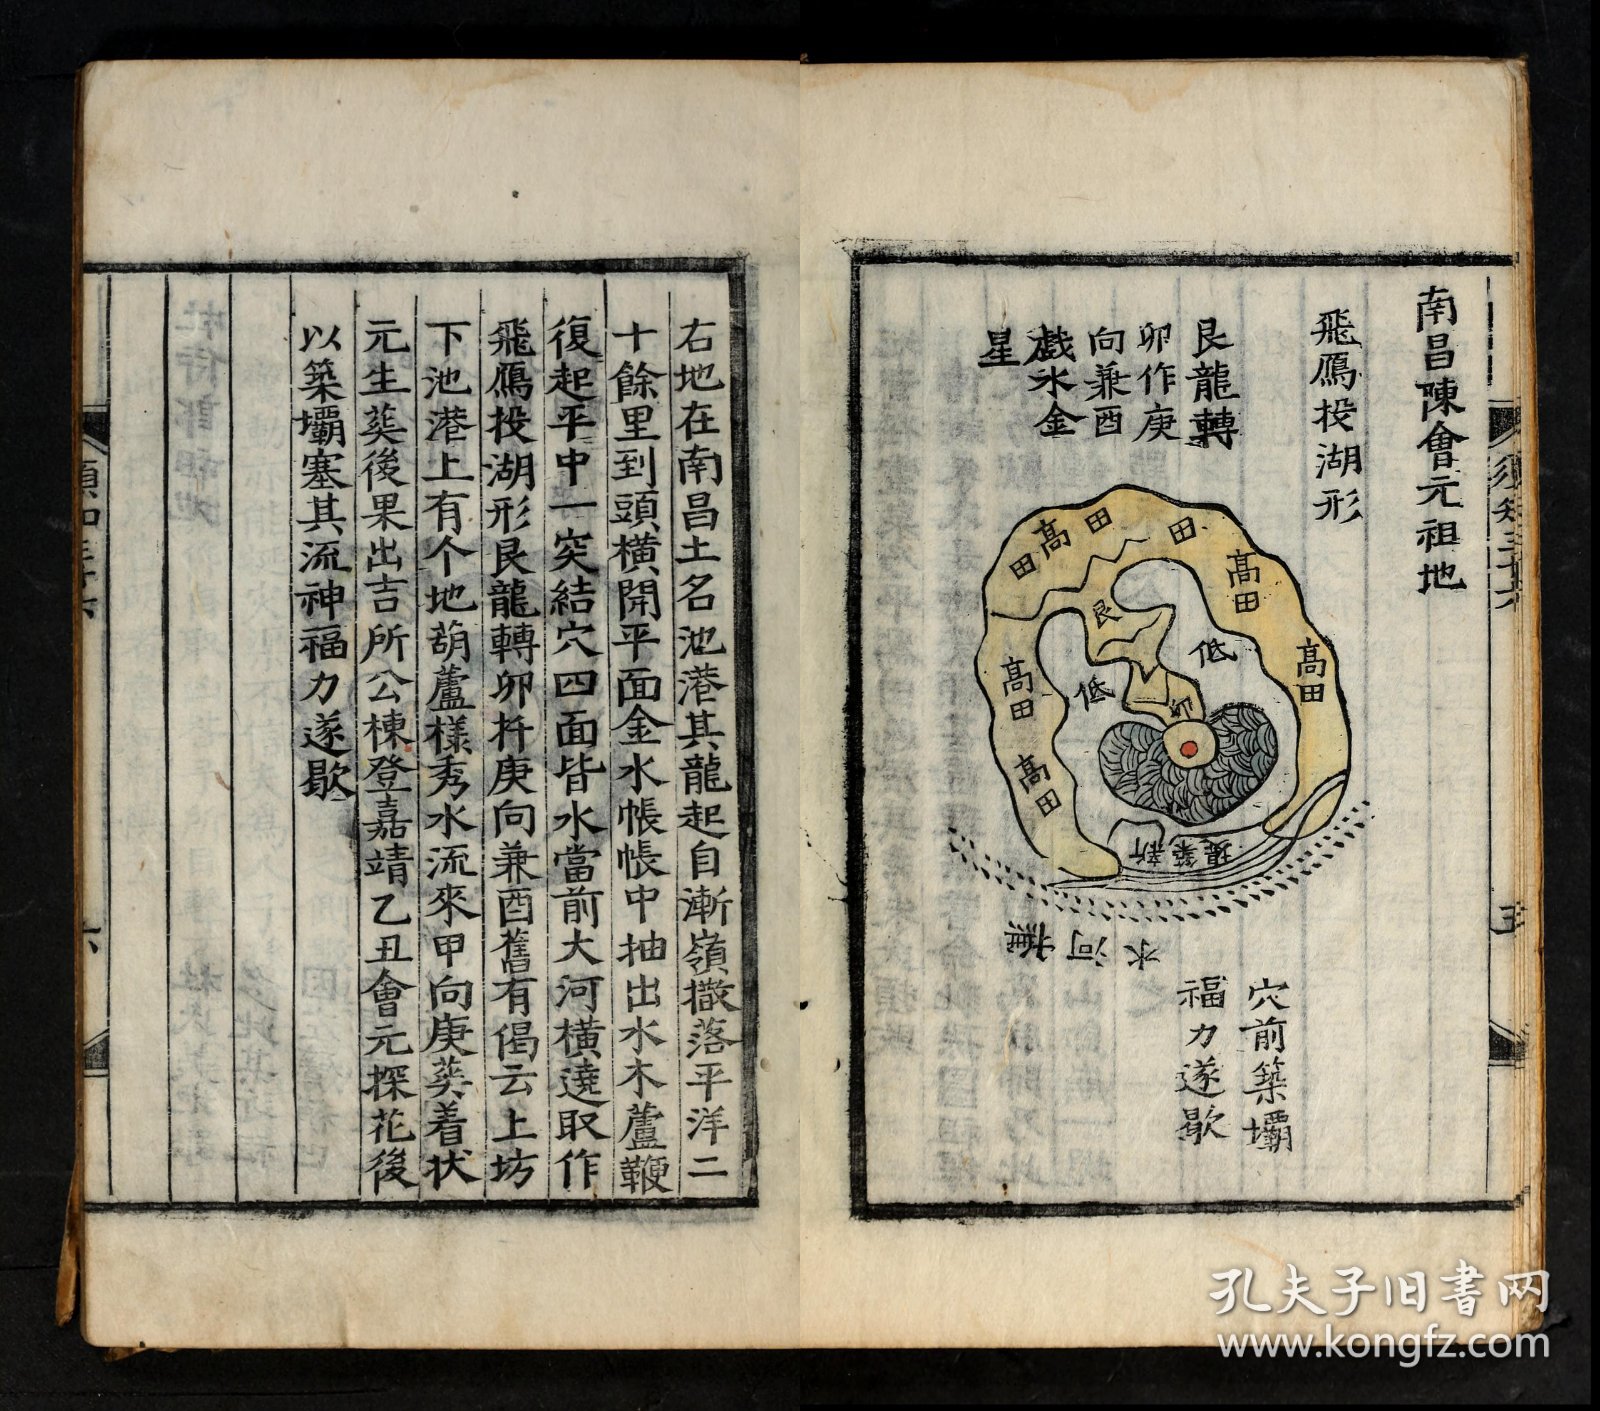 南昌陳會元祖地
飛鴈投湖形
艮龍轉
卯作庚
向兼酉
戯水金
星
田
高
田
田
高
田
高
田
高
田
高
田
艮
低
低
卯
新築堤
撫河水
穴前築壩
福力遂歇
右地在南昌土名池港其龍起自漸嶺撒落平洋二
十餘里到頭橫開平面金水帳帳中抽出水木蘆鞭
復起平中一突結穴四面皆水當前大河橫遶取作
飛鴈投湖形艮龍轉卯杵庚向兼酉舊有偈云上坊
下池港上有个地葫蘆樣秀水流來甲向庚葬着状
元生葬後果出吉所公棟登嘉靖乙丑會元探花後
以築壩塞其流神福力遂歇
六
孔夫子旧书网
www.kongfz.com